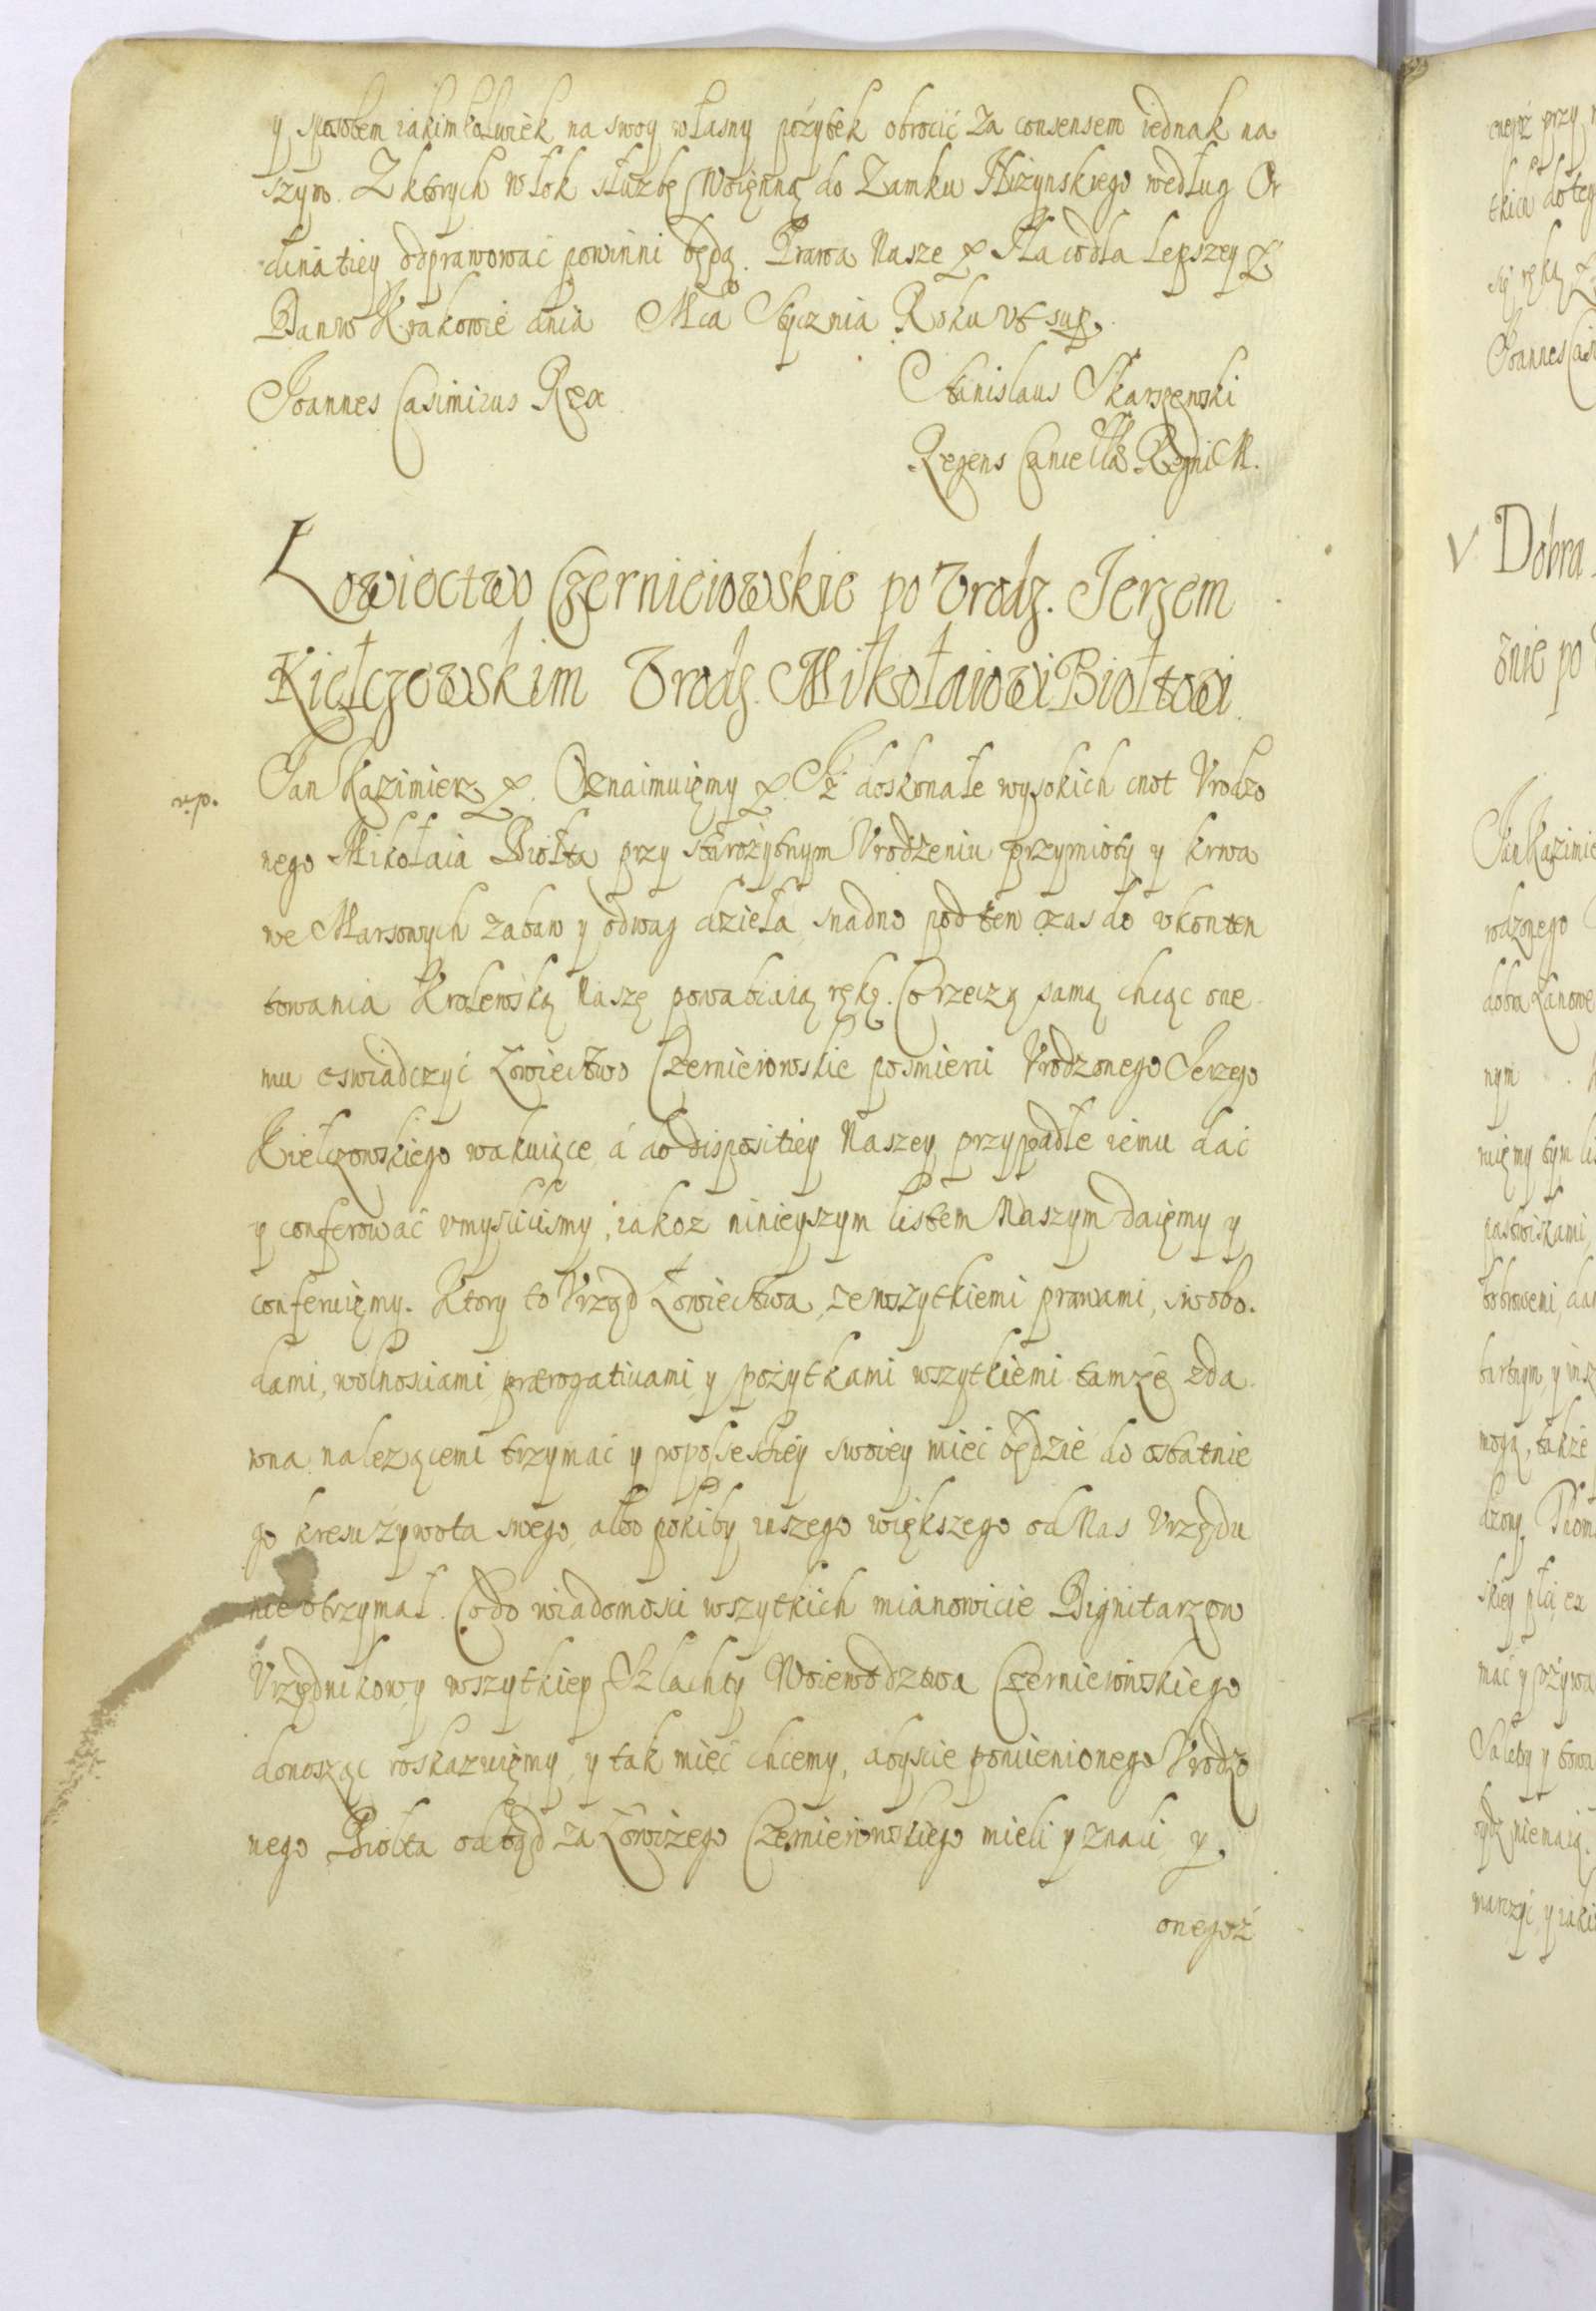 y sposobem iakimkolwiek na swoy własny pożytek obrocić za consensem iednak na
szym. Z ktorych włok służbę Woięnną do Zamku Niżynskiego według Or
dinatiey odprawować powinni będą. Prawa Nasze &c. Na co dla lepszey &c.
Dan w Krakowie dnia Mca Stycznia Roku ut sup.
Joannes Casimirus Rex
Stanislaus Skarszewski
Regens Cancellae Regni M.
Łowiectwo Czerniciowskie po Vrodz. Jerzem
Kiełczowskim Vrodz. Mikołaiowi Biołtowi
v.p.
Jan Kazimierz &c. Oznaimuięmy &c. Iż doskonałe wysokich cnot Vrodzo
nego Mikołaia Biołta przy starożytnym Vrodzeniu przymioty y krwa
we Marsowych zabaw y odwag dzieła, snadno pod ten czas do vkonten
towania Krolewską Naszę powabiaią rękę. Co rzeczą samą chcąc one
mu oswiadczyć Łowiectwo Czernieiowskie po smierci Vrodzonego Jerzego
Kiełczowskiego wakuiące, á do dispositiey Naszey przypadłe iemu dać
y conferować vmyslilismy, iakoz ninieyszym listem Naszym daięmy y
conferuięmy. Ktory to Vrząd Łowiectwa, ze wszytkiemi prawami, swobo-
dami, wolnosciami prærogatiuami, y pożytkami wszytkiemi tamże zda
wna należącemi trzymać y w possessiey swoiey mieć będzie do ostatnie
go kresu żywota swego, albo pokiby inszego większego od Nas Vrzędu
nie otrzymał. Co do wiadomosci wszytkich mianowicie Dignitarzow
Vrzędnikow, y wszytkiey Szlachty Woiewodztwa Czernieiowskiego
donosząc roskazuięmy, y tak mieć chcemy, abyscie pomienionego Vrodzo
nego Biołta odtąd za Łowczego Czernieiowskiego mieli y znali, y
onegoż